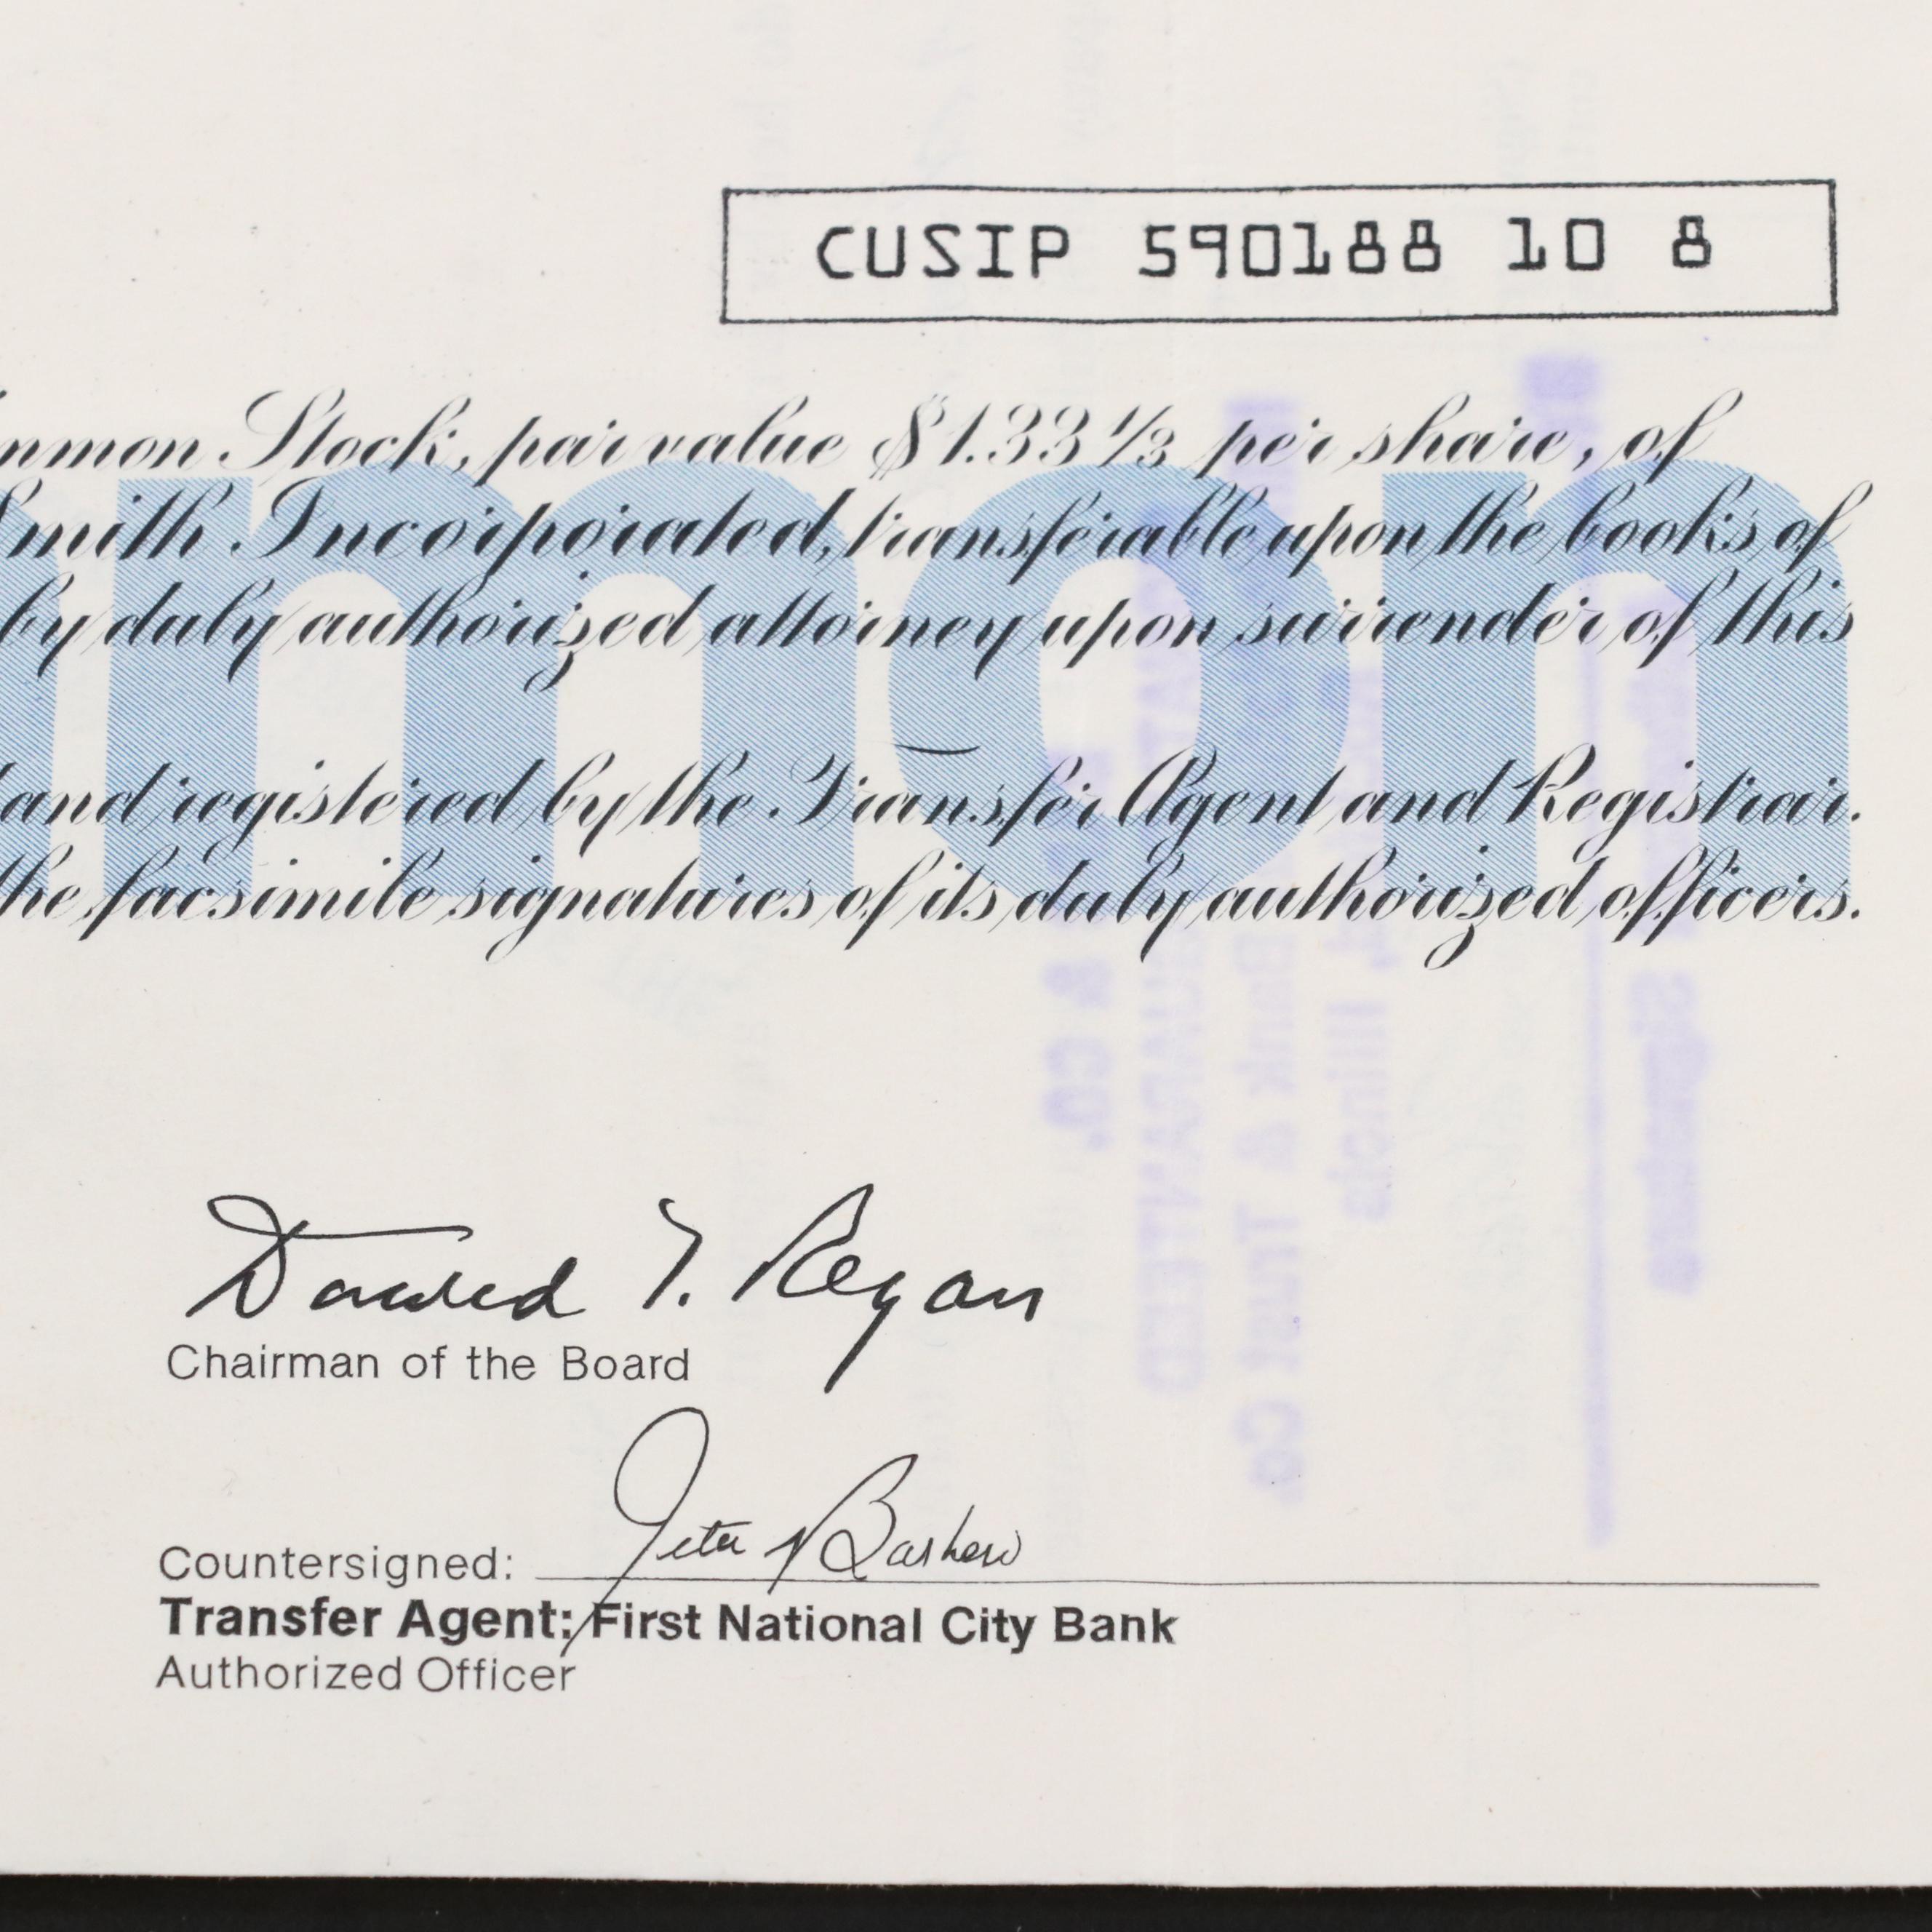 CUSIP 590188 10 8
Stock, par value $1.33 1/3 per share, of
Incorporated, transferable upon the books of
by duly authorized attorney upon surrender of this
and registered by the Transfer Agent and Registrar.
the facsimile signatures of its duly authorized officers.
mon
Donald T. Regan
Chairman of the Board
Countersigned:
Transfer Agent: First National City Bank
Authorized Officer
& CO.
GUARANTEED
Bank & Trust Co
Illinois
Signature